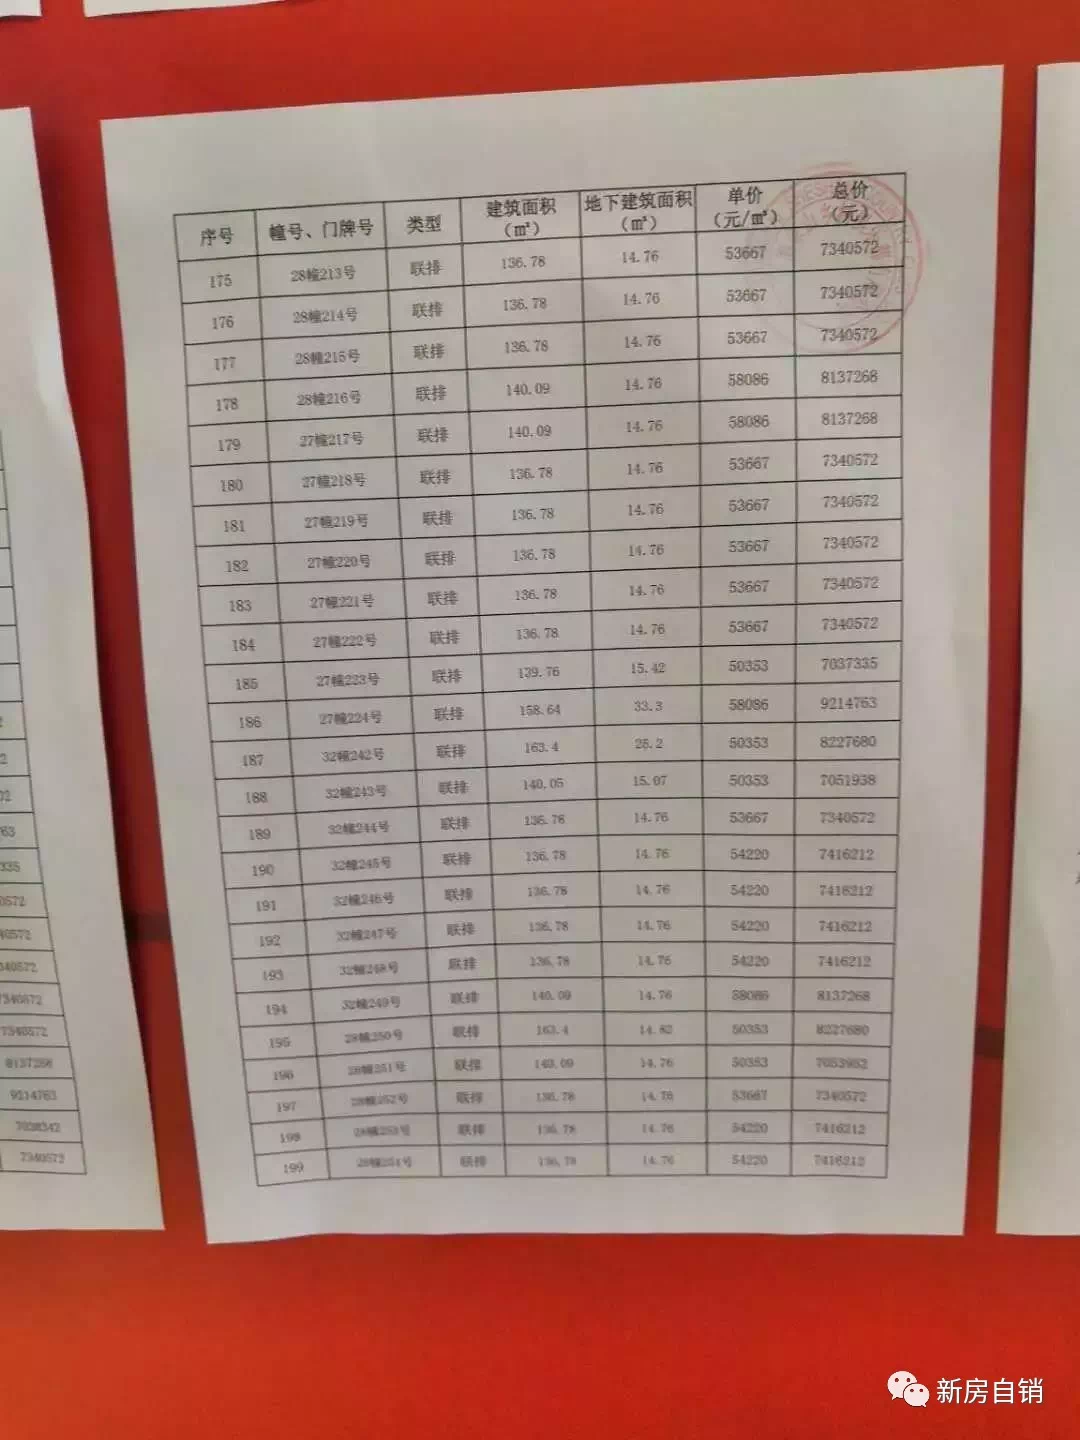 序号 幢号、门牌号 类型 建筑面积（㎡） 地下建筑面积（㎡） 单价（元/㎡） 总价（元）
175 28幢213号 联排 136.78 14.76 53667 7340572
176 28幢214号 联排 136.78 14.76 53667 7340572
177 28幢215号 联排 136.78 14.76 53667 7340572
178 28幢216号 联排 140.09 14.76 58086 8137268
179 27幢217号 联排 140.09 14.76 58086 8137268
180 27幢218号 联排 136.78 14.76 53667 7340572
181 27幢219号 联排 136.78 14.76 53667 7340572
182 27幢220号 联排 136.78 14.76 53667 7340572
183 27幢221号 联排 136.78 14.76 53667 7340572
184 27幢222号 联排 136.78 14.76 53667 7340572
185 27幢223号 联排 139.76 15.42 50353 7037335
186 27幢224号 联排 158.64 33.3 58086 9214763
187 32幢242号 联排 163.4 25.2 50353 8227680
188 32幢243号 联排 140.05 15.07 50353 7051938
189 32幢244号 联排 136.78 14.76 53667 7340572
190 32幢245号 联排 136.78 14.76 54220 7416212
191 32幢246号 联排 136.78 14.76 54220 7416212
192 32幢247号 联排 136.78 14.76 54220 7416212
193 32幢248号 联排 136.78 14.76 54220 7416212
194 32幢249号 联排 140.09 14.76 58086 8137268
195 28幢250号 联排 163.4 14.82 50353 8227680
196 28幢251号 联排 140.09 14.76 50353 7053952
197 28幢252号 联排 136.78 14.76 53667 7340572
198 28幢253号 联排 136.78 14.76 54220 7416212
199 28幢254号 联排 136.78 14.76 54220 7416212
8137268
9214763
7038342
7340572
新房自销